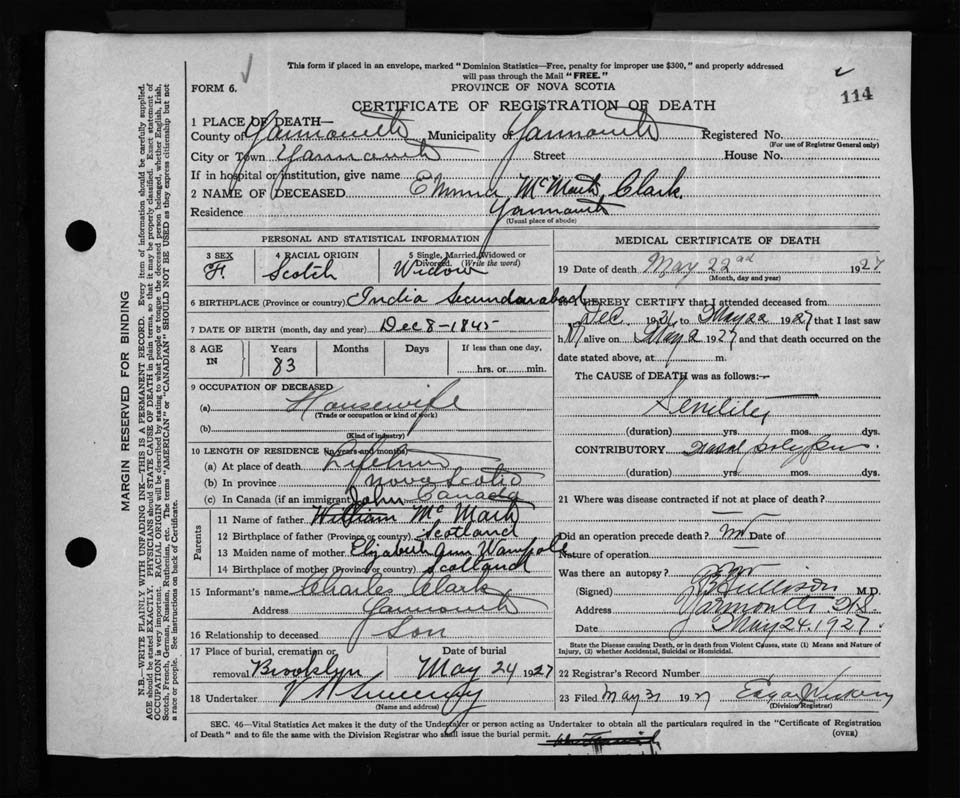 This form if placed in an envelope, marked "Dominion Statistics—Free, penalty for improper use $300," and properly addressed
will pass through the Mail "FREE."
FORM 6.
PROVINCE OF NOVA SCOTIA
114
CERTIFICATE OF REGISTRATION OF DEATH
1 PLACE OF DEATH—
County of Yarmouth Municipality of Yarmouth Registered No.
(For use of Registrar General only)
City or Town Yarmouth Street House No.
If in hospital or institution, give name
2 NAME OF DECEASED Emma McMath Clark.
Residence Yarmouth
(Usual place of abode)
PERSONAL AND STATISTICAL INFORMATION
3 SEX
F.
4 RACIAL ORIGIN
Scotch
5 Single, Married, Widowed or
Divorced. (Write the word)
Widow
6 BIRTHPLACE (Province or country) India Secundarabad
7 DATE OF BIRTH (month, day and year) Dec 8-1845
8 AGE
IN
Years
83
Months
Days
If less than one day,
hrs. or min.
9 OCCUPATION OF DECEASED
(a) Housewife
(Trade or occupation or kind of work)
(b)
(Kind of industry)
10 LENGTH OF RESIDENCE (in years and months)
(a) At place of death Lifetime
(b) In province Nova Scotia
(c) In Canada (if an immigrant) Canada
Parents
11 Name of father William John McMath
12 Birthplace of father (Province or country) Scotland
13 Maiden name of mother Elizabeth Ann Wampole
14 Birthplace of mother (Province or country) Scotland
15 Informant's name Charles Clark
Address Yarmouth
16 Relationship to deceased Son
17 Place of burial, cremation or
removal Brooklyn
Date of burial
May 24 1927
18 Undertaker V S Sweeny
(Name and address)
MEDICAL CERTIFICATE OF DEATH
19 Date of death May 22nd 1927
(Month, day and year)
20 I HEREBY CERTIFY that I attended deceased from
Dec. 1926 to May 22 1927 that I last saw
h alive on May 2 1927 and that death occurred on the
date stated above, at m.
The CAUSE of DEATH was as follows:—
Senility
(duration) yrs. mos. dys.
CONTRIBUTORY nasal polypus
(duration) yrs. mos. dys.
21 Where was disease contracted if not at place of death?
Did an operation precede death? no Date of
Nature of operation
Was there an autopsy? no
(Signed) M.D.
Address Yarmouth N.S.
Date May 24. 1927.
State the Disease Causing Death, or in death from Violent Causes, state (1) Means and Nature of
Injury, (2) whether Accidental, Suicidal or Homicidal.
22 Registrar's Record Number
23 Filed May 31 1927 Edgar
(Division Registrar)
SEC. 46—Vital Statistics Act makes it the duty of the Undertaker or person acting as Undertaker to obtain all the particulars required in the "Certificate of Registration
of Death" and to file the same with the Division Registrar who shall issue the burial permit.
(OVER)
MARGIN RESERVED FOR BINDING
N.B.—WRITE PLAINLY WITH UNFADING INK—THIS IS A PERMANENT RECORD. Every item of information should be carefully supplied.
AGE should be stated EXACTLY. PHYSICIANS should STATE CAUSE OF DEATH in plain terms, so that it may be properly classified. Exact statement of
OCCUPATION is very important. RACIAL ORIGIN will be described by stating to what people or tongue the deceased person belonged, whether English, Irish,
Scotch, French, German, Russian, Ruthenian, etc. The terms "AMERICAN" or "CANADIAN" SHOULD NOT BE USED as they express citizenship but not
a race or people. See instructions on back of Certificate.